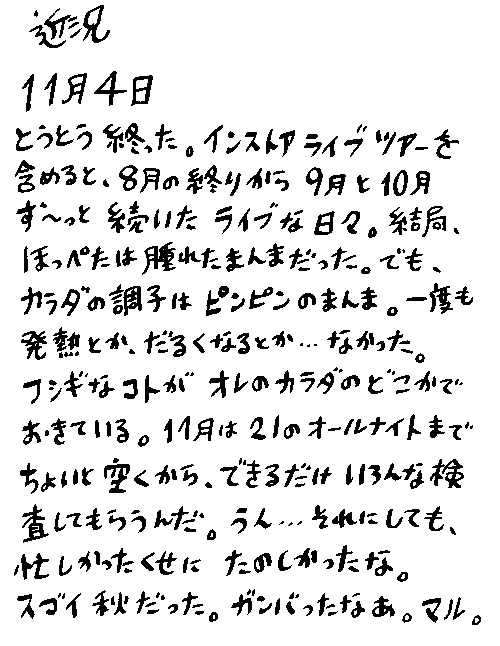 近況
11月4日
とうとう終った。インストアライブツアーを
含めると、8月の終りから9月と10月
ず〜っと続いたライブな日々。結局、
ほっぺたは腫れたまんまだった。でも、
カラダの調子はピンピンのまんま。一度も
発熱とか、だるくなるとか…なかった。
フシギなコトがオレのカラダのどこかで
おきている。11月は21のオールナイトまで
ちょいと空くから、できるだけいろんな検
査してもらうんだ。うん…それにしても、
忙しかったくせにたのしかったな。
スゴイ秋だった。ガンバったなぁ。マル。